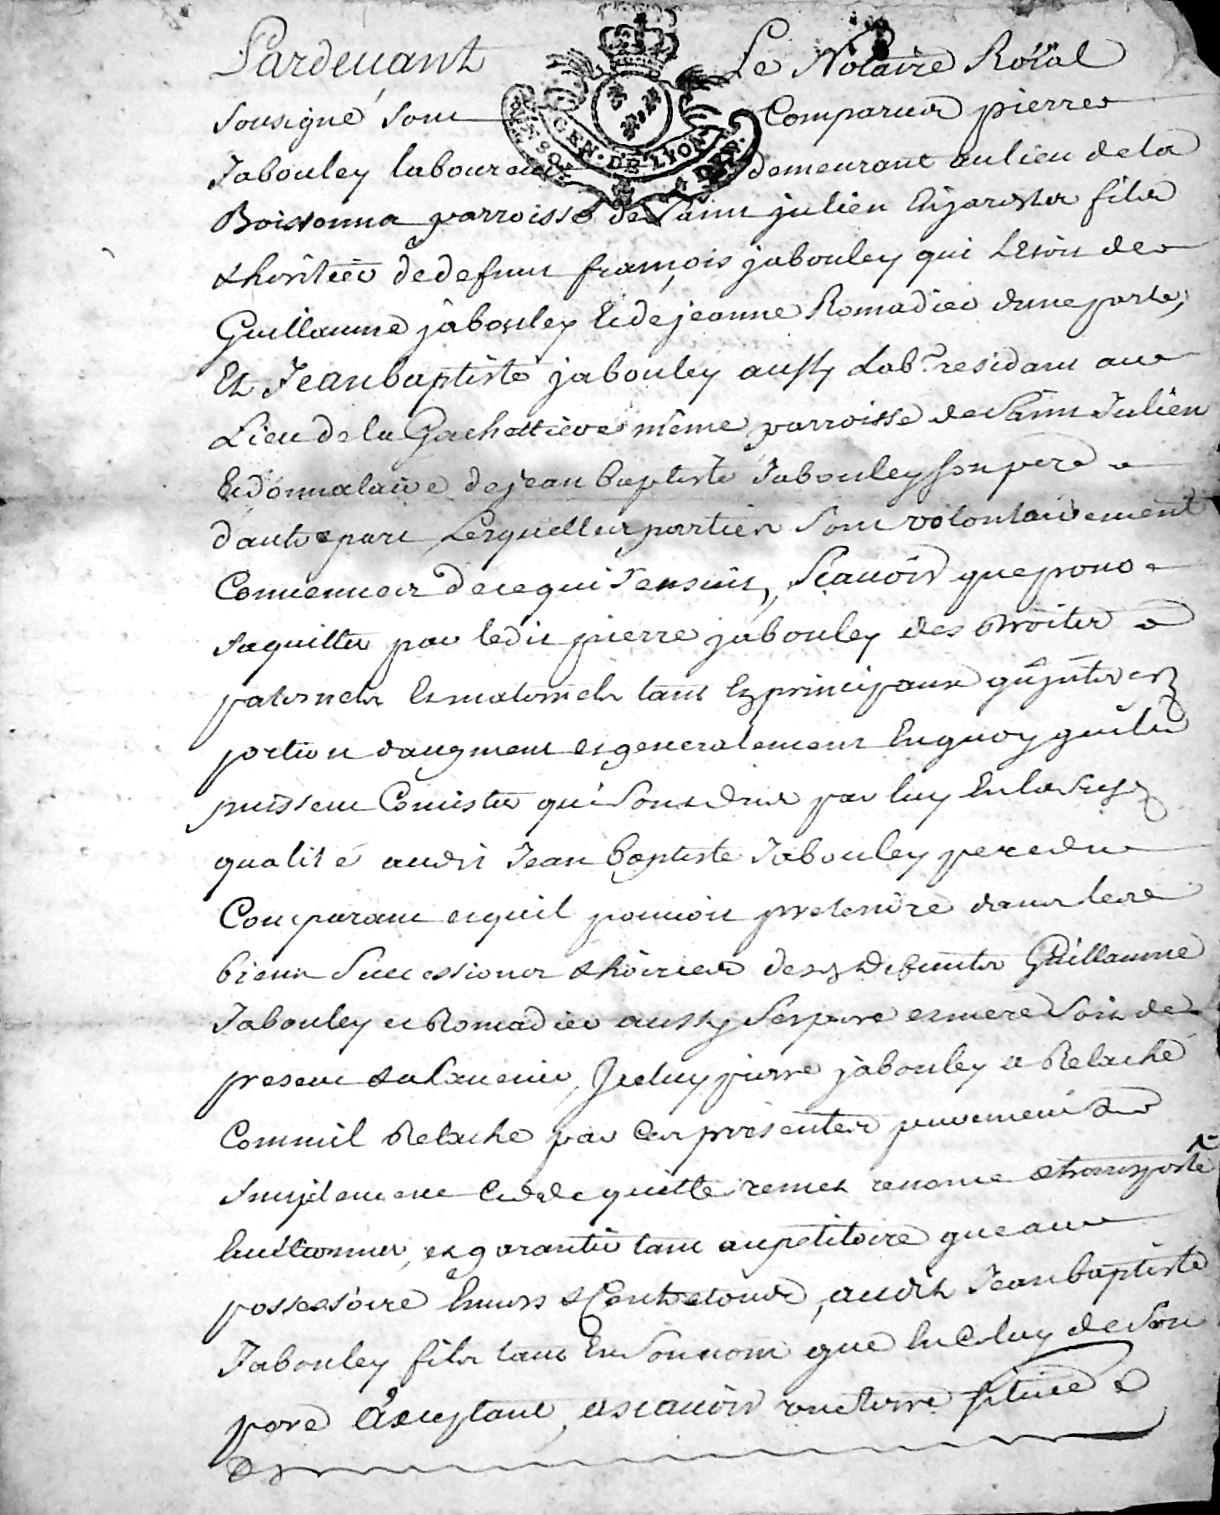 Pardevant Le Notaire Roïal
GEN. DE LYON
Sousigné sont Comparus pierre
Jabouley laboureur demeurant au lieu de la
Boissonna parroisse de Saint julien En jarest fils
& héritier de defunt françois jabouley qui L'etoit de
Guillaume jabouley Et de jeanne Romadier d'une part,
Et Jean baptiste jabouley aussy Labr. residant au
Lieu de la Gachettiere même parroisse de Saint Julien
Et donnataire de jean baptiste Jabouley son pere
d'autre part, Lesquelles parties sont volontairement
Convenues de ce qui s'ensuit, Scavoir que pour
s'aquitter par ledit pierre jabouley des Droits
paternels Et maternels tant En principaux qu'
portion d'augment et generalement En quoy qu'ils
puissent Consister qui sont dus par luy En la
qualité audit Jean baptiste Jabouley pere du
Comparant et qu'il pouvoit pretendre dans les
biens Successions & hoiries des defunts Guillaume
Jabouley et Romadier aussy Ses pere et mere Soit de
present ou a L'avenir, Iceluy pierre jabouley a Relaché
Comme il Relache par Ces presentes purement &
Simplement Cede quitte remet renonce & transporte
garantir tant au petitoire que au
possessoire Envers & Contre tous, audit Jean baptiste
Jabouley fils tant En Son nom que En Celuy de Son
pere Acceptant, a scavoir une terre Située